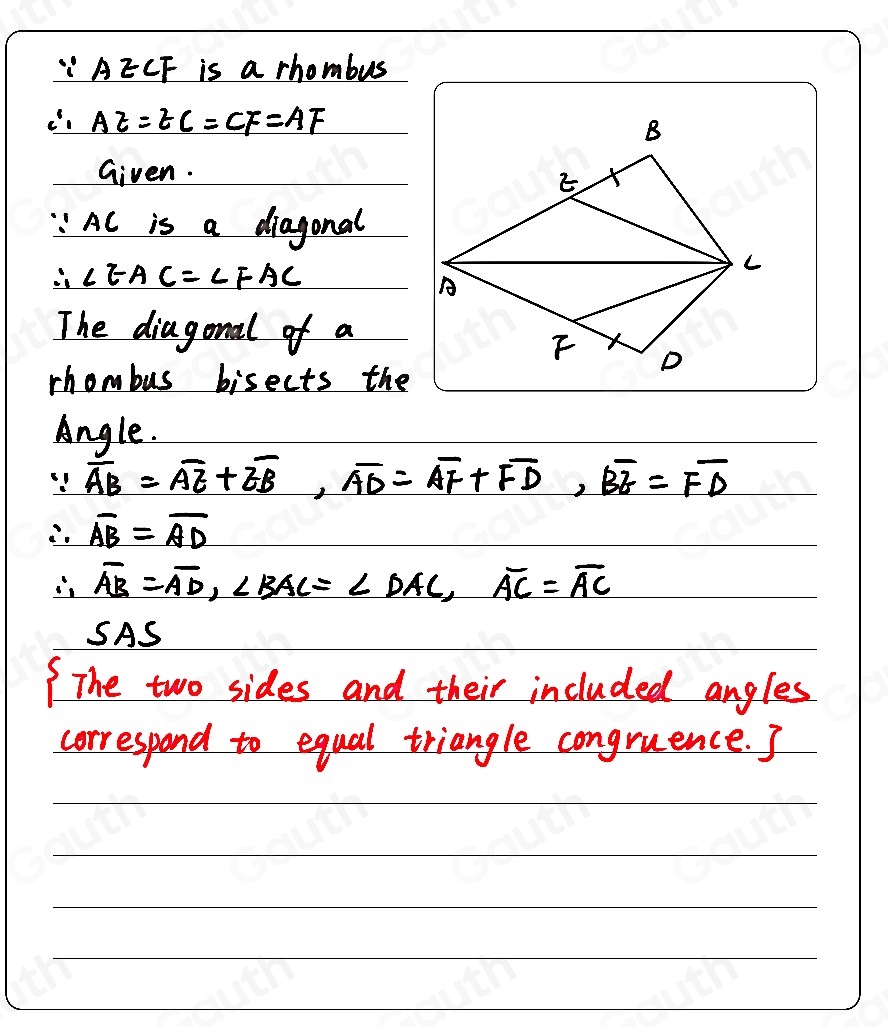 ∵ AECF is a rhombus
∴ AE=EC=CF=AF
Given.
∵ AC is a diagonal
∴ ∠EAC=∠FAC
The diagonal of a
rhombus bisects the
Angle.
B
E
A
C
F
D
∵ A̅B̅ = A̅E̅+E̅B̅ , A̅D̅= A̅F̅+F̅D̅ , B̅E̅ = F̅D̅
∴ A̅B̅ = A̅D̅
∴ A̅B̅ =A̅D̅, ∠BAC= ∠DAC, A̅C̅ = A̅C̅
SAS
{The two sides and their included angles
correspond to equal triangle congruence.}
Gauth